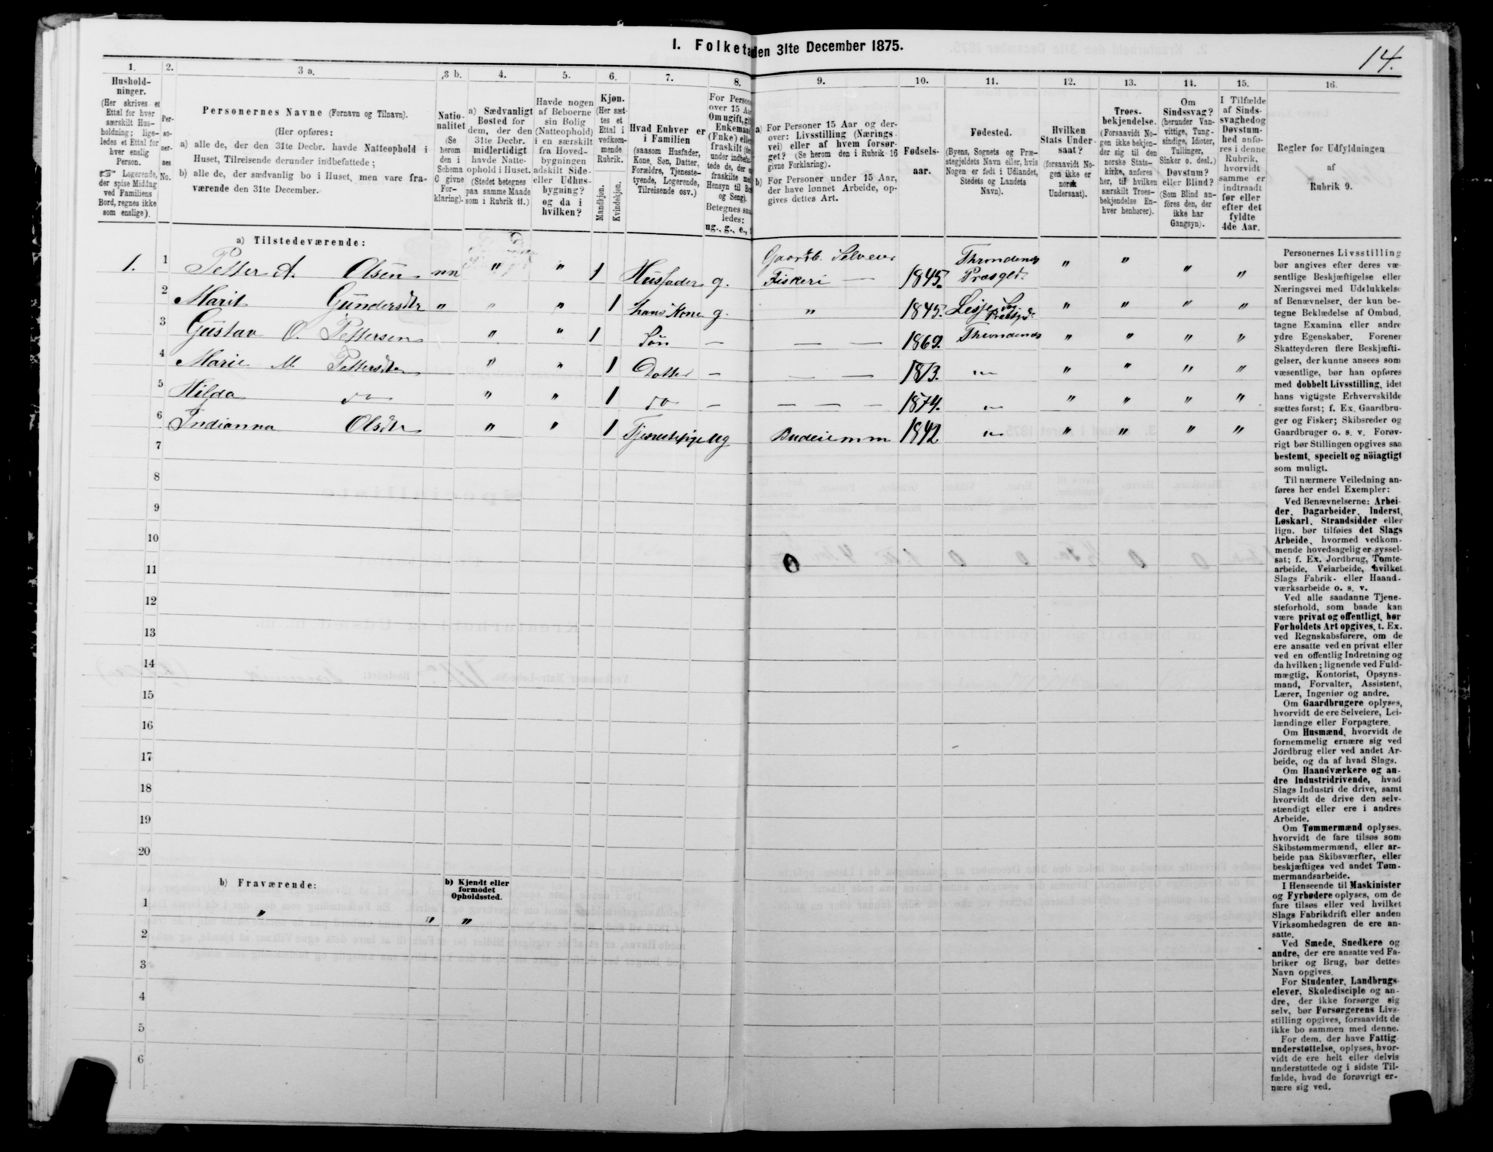 I. Folketa
den 31te December 1875.
14.
1.
Hushold-
ninger.
(Her skrives et
Ettal for hver
særskilt Hus-
holdning; lige-
ledes et Ettal for
hver enslig
Person.
Logerende,
der spise Middag
ved Familiens
Bord, regnes ikke
som enslige).
2.
Per-
so-
ner-
nes
No.
3 a.
Personernes Navne (Fornavn og Tilnavn).
(Her opføres:
a) alle de, der den 31te Decbr. havde Natteophold i
Huset, Tilreisende derunder indbefattede;
b) alle de, der sædvanlig bo i Huset, men vare fra-
værende den 31te December.
3 b.
Natio-
nalitet
(Se
herom
den i
Schema
C givne
For-
klaring).
4.
a) Sædvanligt
Bosted for
dem, der den
31te Decbr.
midlertidigt
havde Natte-
ophold i Huset.
(Stedet betegnes
paa samme Maade
som i Rubrik 11.)
5.
Havde nogen
af Beboerne
sin Bolig
(Natteophold)
i en særskilt
fra Hoved-
bygningen
adskilt Side-
eller Udhus-
bygning?
og da i
hvilken?
6.
Kjøn.
(Her sæt-
tes et
Ettal i
vedkom-
mende
Rubrik.
Mandkjøn.
Kvindekjøn.
7.
Hvad Enhver er
i Familien
(saasom Husfader,
Kone, Søn, Datter,
Forældre, Tjeneste-
tyende, Logerende,
Tilreisende osv.)
8.
For Perso
over 15 Aa
Om ugift, g
Enkema
(Enke) ell
fraskilt
Betegnes
ledes:
ug., g., e.,
9.
a) For Personer 15 Aar og der-
over: Livsstilling (Nærings-
vei) eller af hvem forsør-
get? (Se herom den i Rubrik 16
givne Forklaring).
b) For Personer under 15 Aar,
der have lønnet Arbeide, op-
gives dettes Art.
10.
Fødsels-
aar.
11.
Fødested.
(Byens, Sognets og Præ-
stegjeldets Navn eller, hvis
Nogen er født i Udlandet,
Stedets og Landets
Navn).
12.
Hvilken
Stats Under-
saat?
(forsaavidt No-
gen ikke er
norsk
Undersaat).
13.
Troes-
bekjendelse.
(Forsaavidt No-
gen ikke bekjen-
der sig til den
norske Stats-
kirke, anføres
her, til hvilken
særskilt Troes-
bekjendelse En-
hver henhører).
14.
Om
Sindssvag?
(herunder Van-
vittige, Tung-
sindige, Idioter,
Tullinger,
Sinker o. desl.)
Døvstum?
eller Blind?
(Som Blind an-
føres den, der
ikke har
Gangsyn).
15.
I Tilfælde
af Sinds-
svaghed og
Døvstum-
hed anfø-
res i denne
Rubrik,
hvorvidt
samme er
indtraadt
før eller
efter det
fyldte
4de Aar.
16.
Regler for Udfyldningen
af
Rubrik 9.
a) Tilstedeværende:
1. 1 Petter A. Olsen nn " " 1 Husfader g. Gaardb. Selveier Fiskeri — 1845. Throndenes Præsgld. " " " "
2 Marit Gundersdtr " " " 1 hans Kone g. " 1845. Lesje " " " "
3 Gustav O. Pettersen " " 1 Søn — — — 1869. Throndenes " " " "
4 Marie M. Pettersdtr " " 1 Datter — — — 1873. " " " " "
5 Hilda do " " 1 do — — — — 1874. " " " " "
6 Indianna Olsdtr " " 1 Tjenestepige ug Budeie m m 1842 " " " " "
7
8
9
10
11
12
13
14
15
16
17
18
19
20
0
b) Fraværende:
b) Kjendt eller
formodet
Opholdssted.
1 " " "
2
3
4
5
6
Personernes Livsstilling
bør angives efter deres væ-
sentlige Beskjæftigelse eller
Næringsvei med Udelukkelse
af Benævnelser, der kun be-
tegne Beklædelse af Ombud,
tagne Examina eller andre
ydre Egenskaber. Forener
Skatteyderen flere Beskjæfti-
gelser, der kunne ansees som
væsentlige, bør han opføres
med dobbelt Livsstilling, idet
hans vigtigste Erhvervskilde
sættes først; f. Ex. Gaardbru-
ger og Fisker; Skibsreder og
Gaardbruger o. s. v. Forøv-
rigt bør Stillingen opgives saa
bestemt, specielt og nöiagtigt
som muligt.
Til nærmere Veiledning an-
føres her endel Exempler:
Ved Benævnelserne: Arbei-
der, Dagarbeider, Inderst,
Løskarl, Strandsidder eller
lign. bør tilføies det Slags
Arbeide, hvormed vedkom-
mende hovedsagelig er syssel-
sat; f. Ex. Jordbrug, Tomte-
arbeide, Veiarbeide, hvilket
Slags Fabrik- eller Haand-
værksarbeide o. s. v.
Ved alle saadanne Tjene-
steforhold, som baade kan
være privat og offentligt, bør
Forholdets Art opgives, t. Ex.
ved Regnskabsførere, om de
ere ansatte ved en privat eller
ved en offentlig Indretning og
da hvilken; lignende ved Fuld-
mægtig, Kontorist, Opsyns-
mand, Forvalter, Assistent,
Lærer, Ingeniør og andre.
Om Gaardbrugere oplyses,
hvorvidt de ere Selveiere, Lei-
lændinge eller Forpagtere.
Om Husmænd, hvorvidt de
fornemmelig ernære sig ved
Jordbrug eller ved andet Ar-
beide, og da af hvad Slags.
Om Haandværkere og an-
dre Industridrivende, hvad
Slags Industri de drive, samt
hvorvidt de drive den selv-
stændigt eller ere i andres
Arbeide.
Om Tømmermænd oplyses,
hvorvidt de fare tilsøs som
Skibstømmermænd, eller ar-
beide paa Skibsværfter, eller
beskjæftiges ved andet Tøm-
mermandsarbeide.
I Henseende til Maskinister
og Fyrbødere oplyses, om de
fare tilsøs eller ved hvilket
Slags Fabrikdrift eller anden
Virksomhedsgren de ere an-
satte.
Ved Smede, Snedkere og
andre, der ere ansatte ved Fa-
briker og Brug, bør dettes
Navn opgives.
For Studenter, Landbrugs-
elever, Skoledisciple og an-
dre, der ikke forsørge sig
selv, bør Forsørgerens Livs-
stilling opgives, forsaavidt de
ikke bo sammen med denne.
For dem, der have Fattig-
understøttelse, oplyses, hvor-
vidt de ere helt eller delvis
understøttede og i sidste Til-
fælde, hvad de forøvrigt er-
nære sig ved.